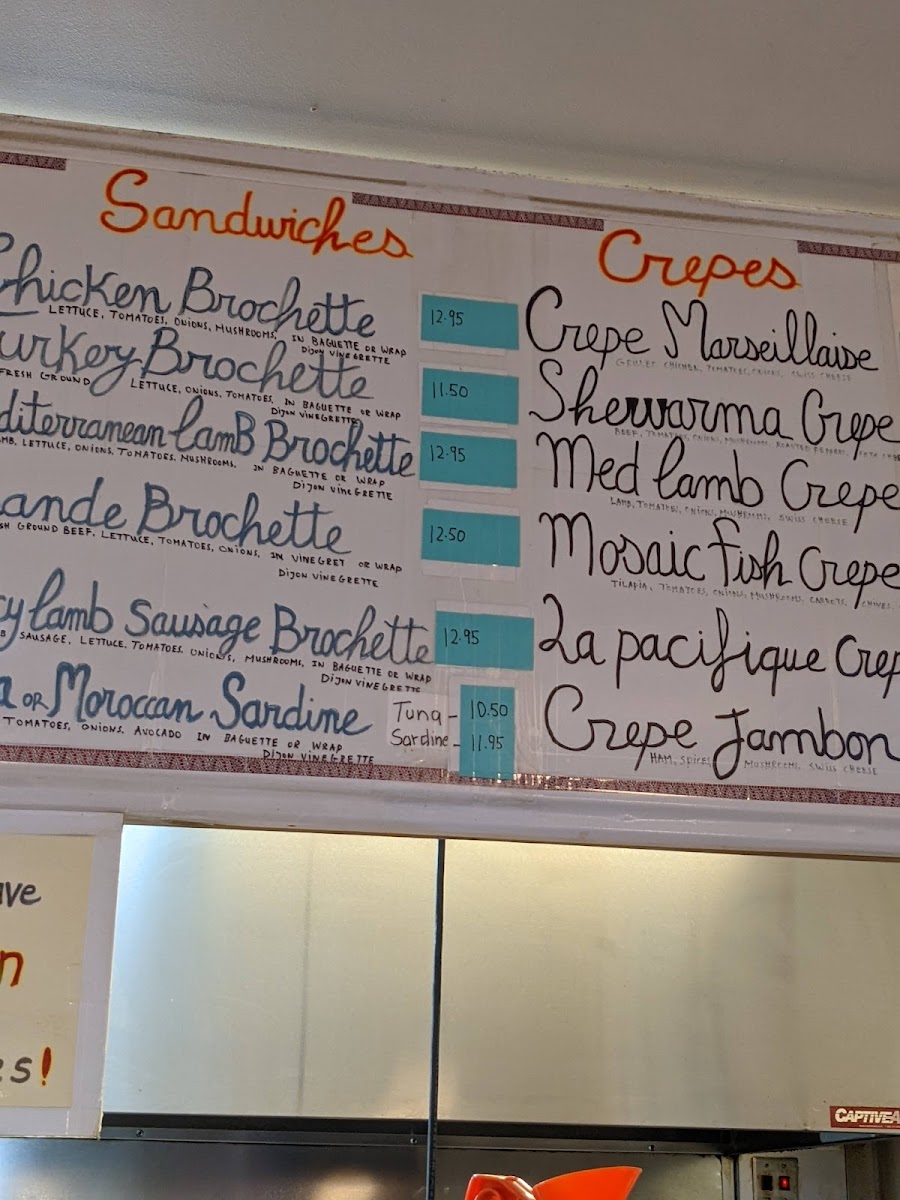 Sandwiches
Chicken Brochette 12.95
LETTUCE, TOMATOES, ONIONS, MUSHROOMS, IN BAGUETTE OR WRAP
DIJON VINEGRETTE
urkey Brochette 11.50
FRESH GROUND LETTUCE, ONIONS, TOMATOES, IN BAGUETTE OR WRAP
DIJON VINEGRETTE
diterranean lamB Brochette 12.95
MB, LETTUCE, ONIONS, TOMATOES, MUSHROOMS, IN BAGUETTE OR WRAP
DIJON VINEGRETTE
ande Brochette 12.50
SH GROUND BEEF, LETTUCE, TOMATOES, ONIONS, IN VINEGRET OR WRAP
DIJON VINEGRETTE
cy lamb Sausage Brochette 12.95
B SAUSAGE, LETTUCE, TOMATOES, ONIONS, MUSHROOMS, IN BAGUETTE OR WRAP
DIJON VINEGRETTE
a OR Moroccan Sardine
Tuna - 10.50
Sardine - 11.95
TOMATOES, ONIONS, AVOCADO IN BAGUETTE OR WRAP
DIJON VINEGRETTE
Crepes
Crepe Marseillaise
CHICKEN, TOMATOES, ONIONS, SWISS CHEESE
Shewarma Crepe
BEEF, TOMATOES, ONIONS, MUSHROOMS, ROASTED
Med lamb Crepe
LAMB, TOMATOES, ONIONS, MUSHROOMS, SWISS CHEESE
Mosaic fish Crepe
TILAPIA, TOMATOES, ONIONS, MUSHROOMS, CARROTS, CHIVES,
La pacifique Crep
Crepe Jambon
HAM, SPICES MUSHROOMS, SWISS CHEESE
ave
n
es!
CAPTIVEA